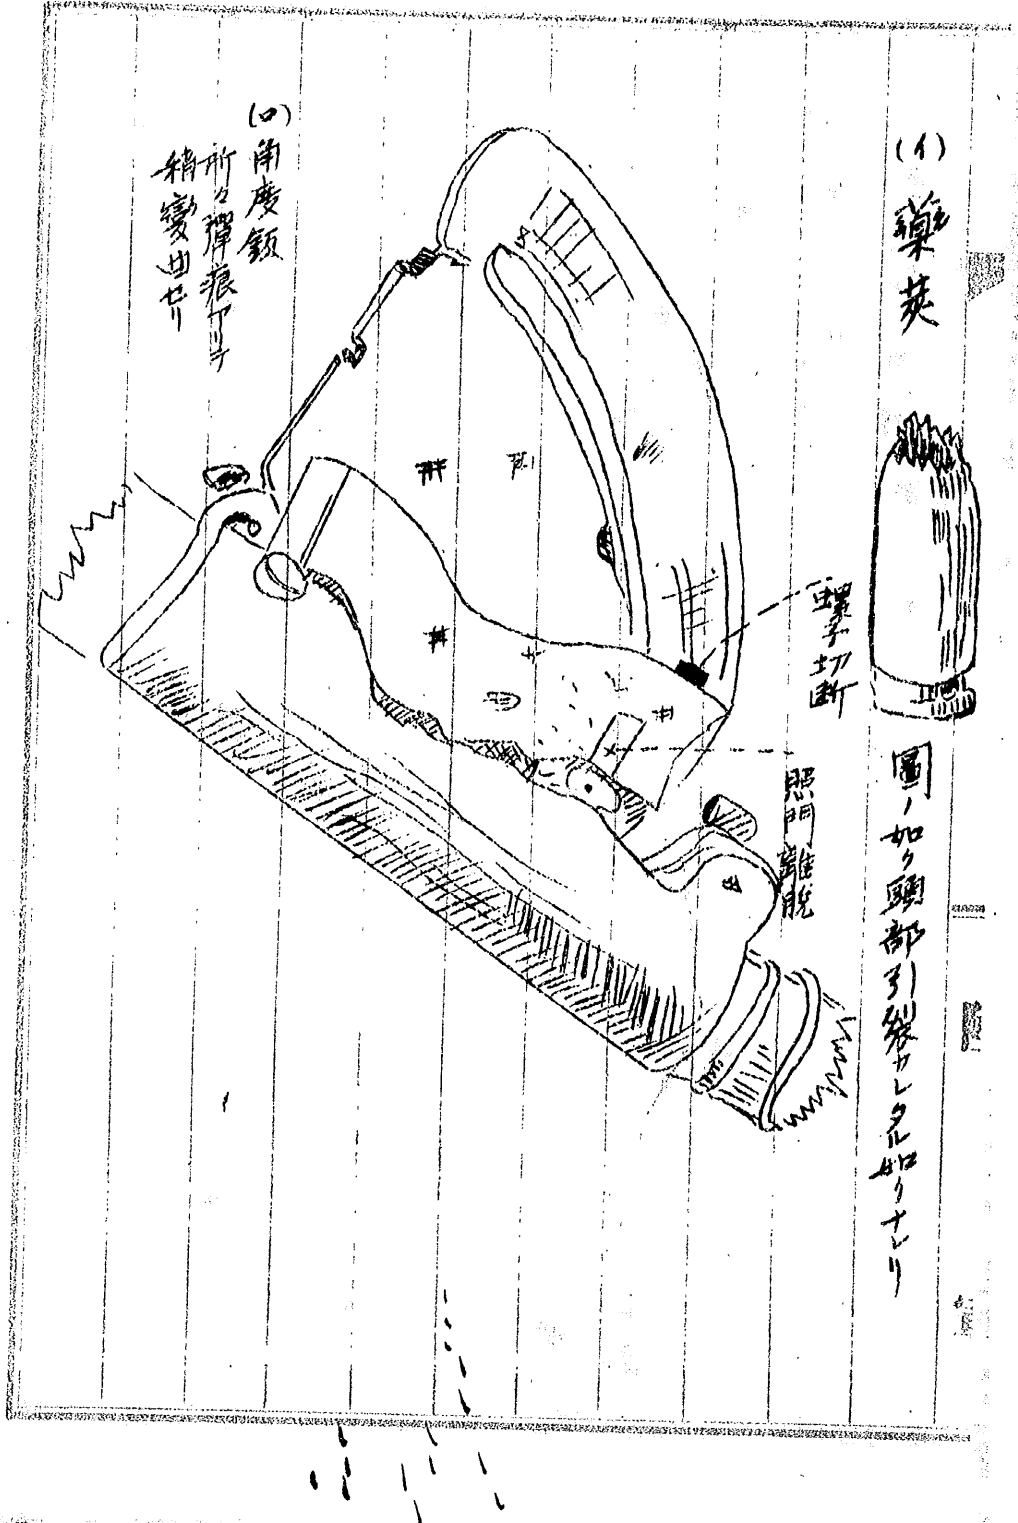 (イ) 藥莢
圖ノ如ク頭部引裂カレタル如クナレリ
螺子切断
照門離脫
(ロ) 角度鈑
所々彈痕アリテ
稍變曲セリ